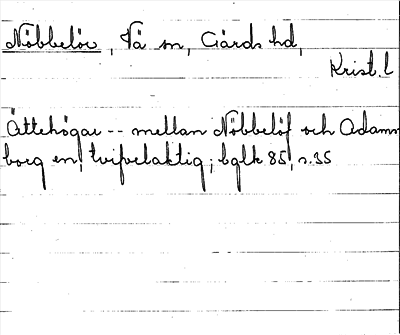 Nöbbelöv, Vä sn, Gärds hd,
Krist. l
Ättehögar -- mellan Nöbbelöf och Adams
borg en, tvifvelaktig; bglk 85, s. 35